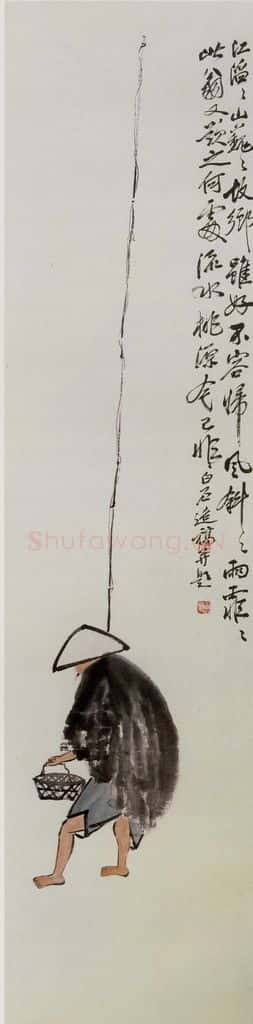 江滔〻山巍〻故鄉雖好不容歸風斜〻雨霏〻
此翁又欲之何處流水桃源今已非白石造稿并題
Shufawang.CN